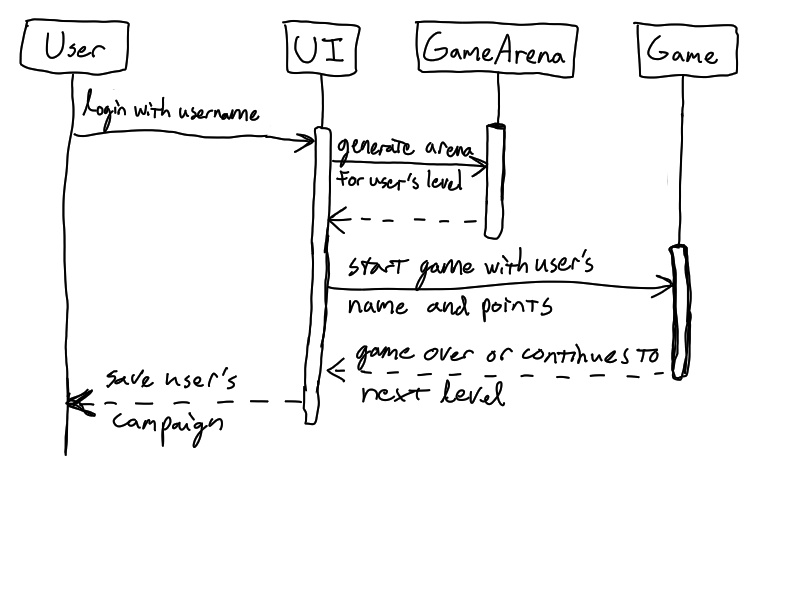 User
UI
GameArena
Game
login with username
generate arena
for user's level
start game with user's
name and points
game over or continues to
next level
save user's
campaign